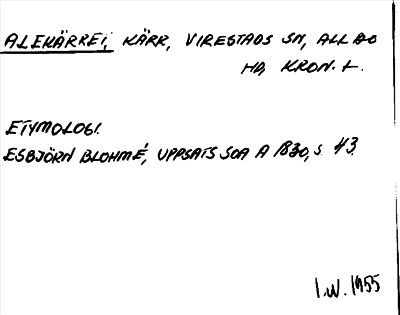 ALEKÄRRET, KÄRR, VIRESTADS SN, ALLBO
HD, KRON. L.
ETYMOLOGI.
ESBJÖRN BLOHMÉ, UPPSATS SOA A 1830, S. 43.
I.W. 1955